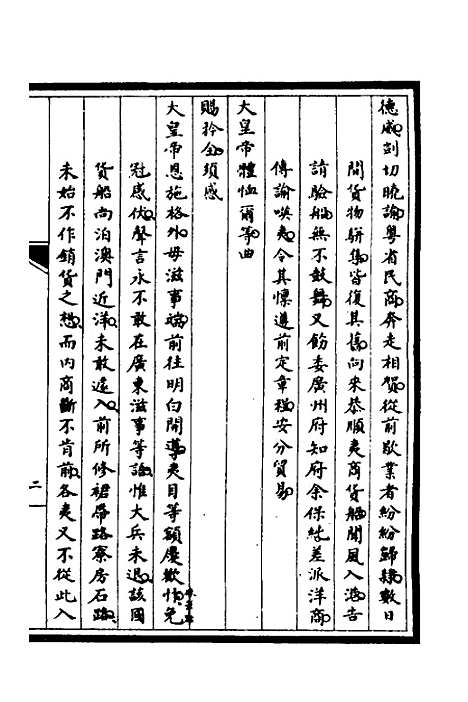 德威剴切曉諭粵省民商奔走相賀從前歇業者紛紛歸肆數日
間貨物駢集皆復其舊向來恭順夷商貨船聞風入港告
請驗艙無不鼓舞又飭委廣州府知府余保純差派洋商
傳諭𠸄夷令其懍遵前定章程安分貿易
大皇帝體恤爾等曲
賜矜全須感
大皇帝恩施格外毋滋事端前往明白開導夷目等額慶歡忭免
冠感伏聲言永不敢在廣東滋事等語惟大兵未退該國
貨船尚泊澳門近洋未敢遽入前所修裙帶路寮房石路
未始不作銷貨之想而內商斷不肯前各夷又不從此入
二